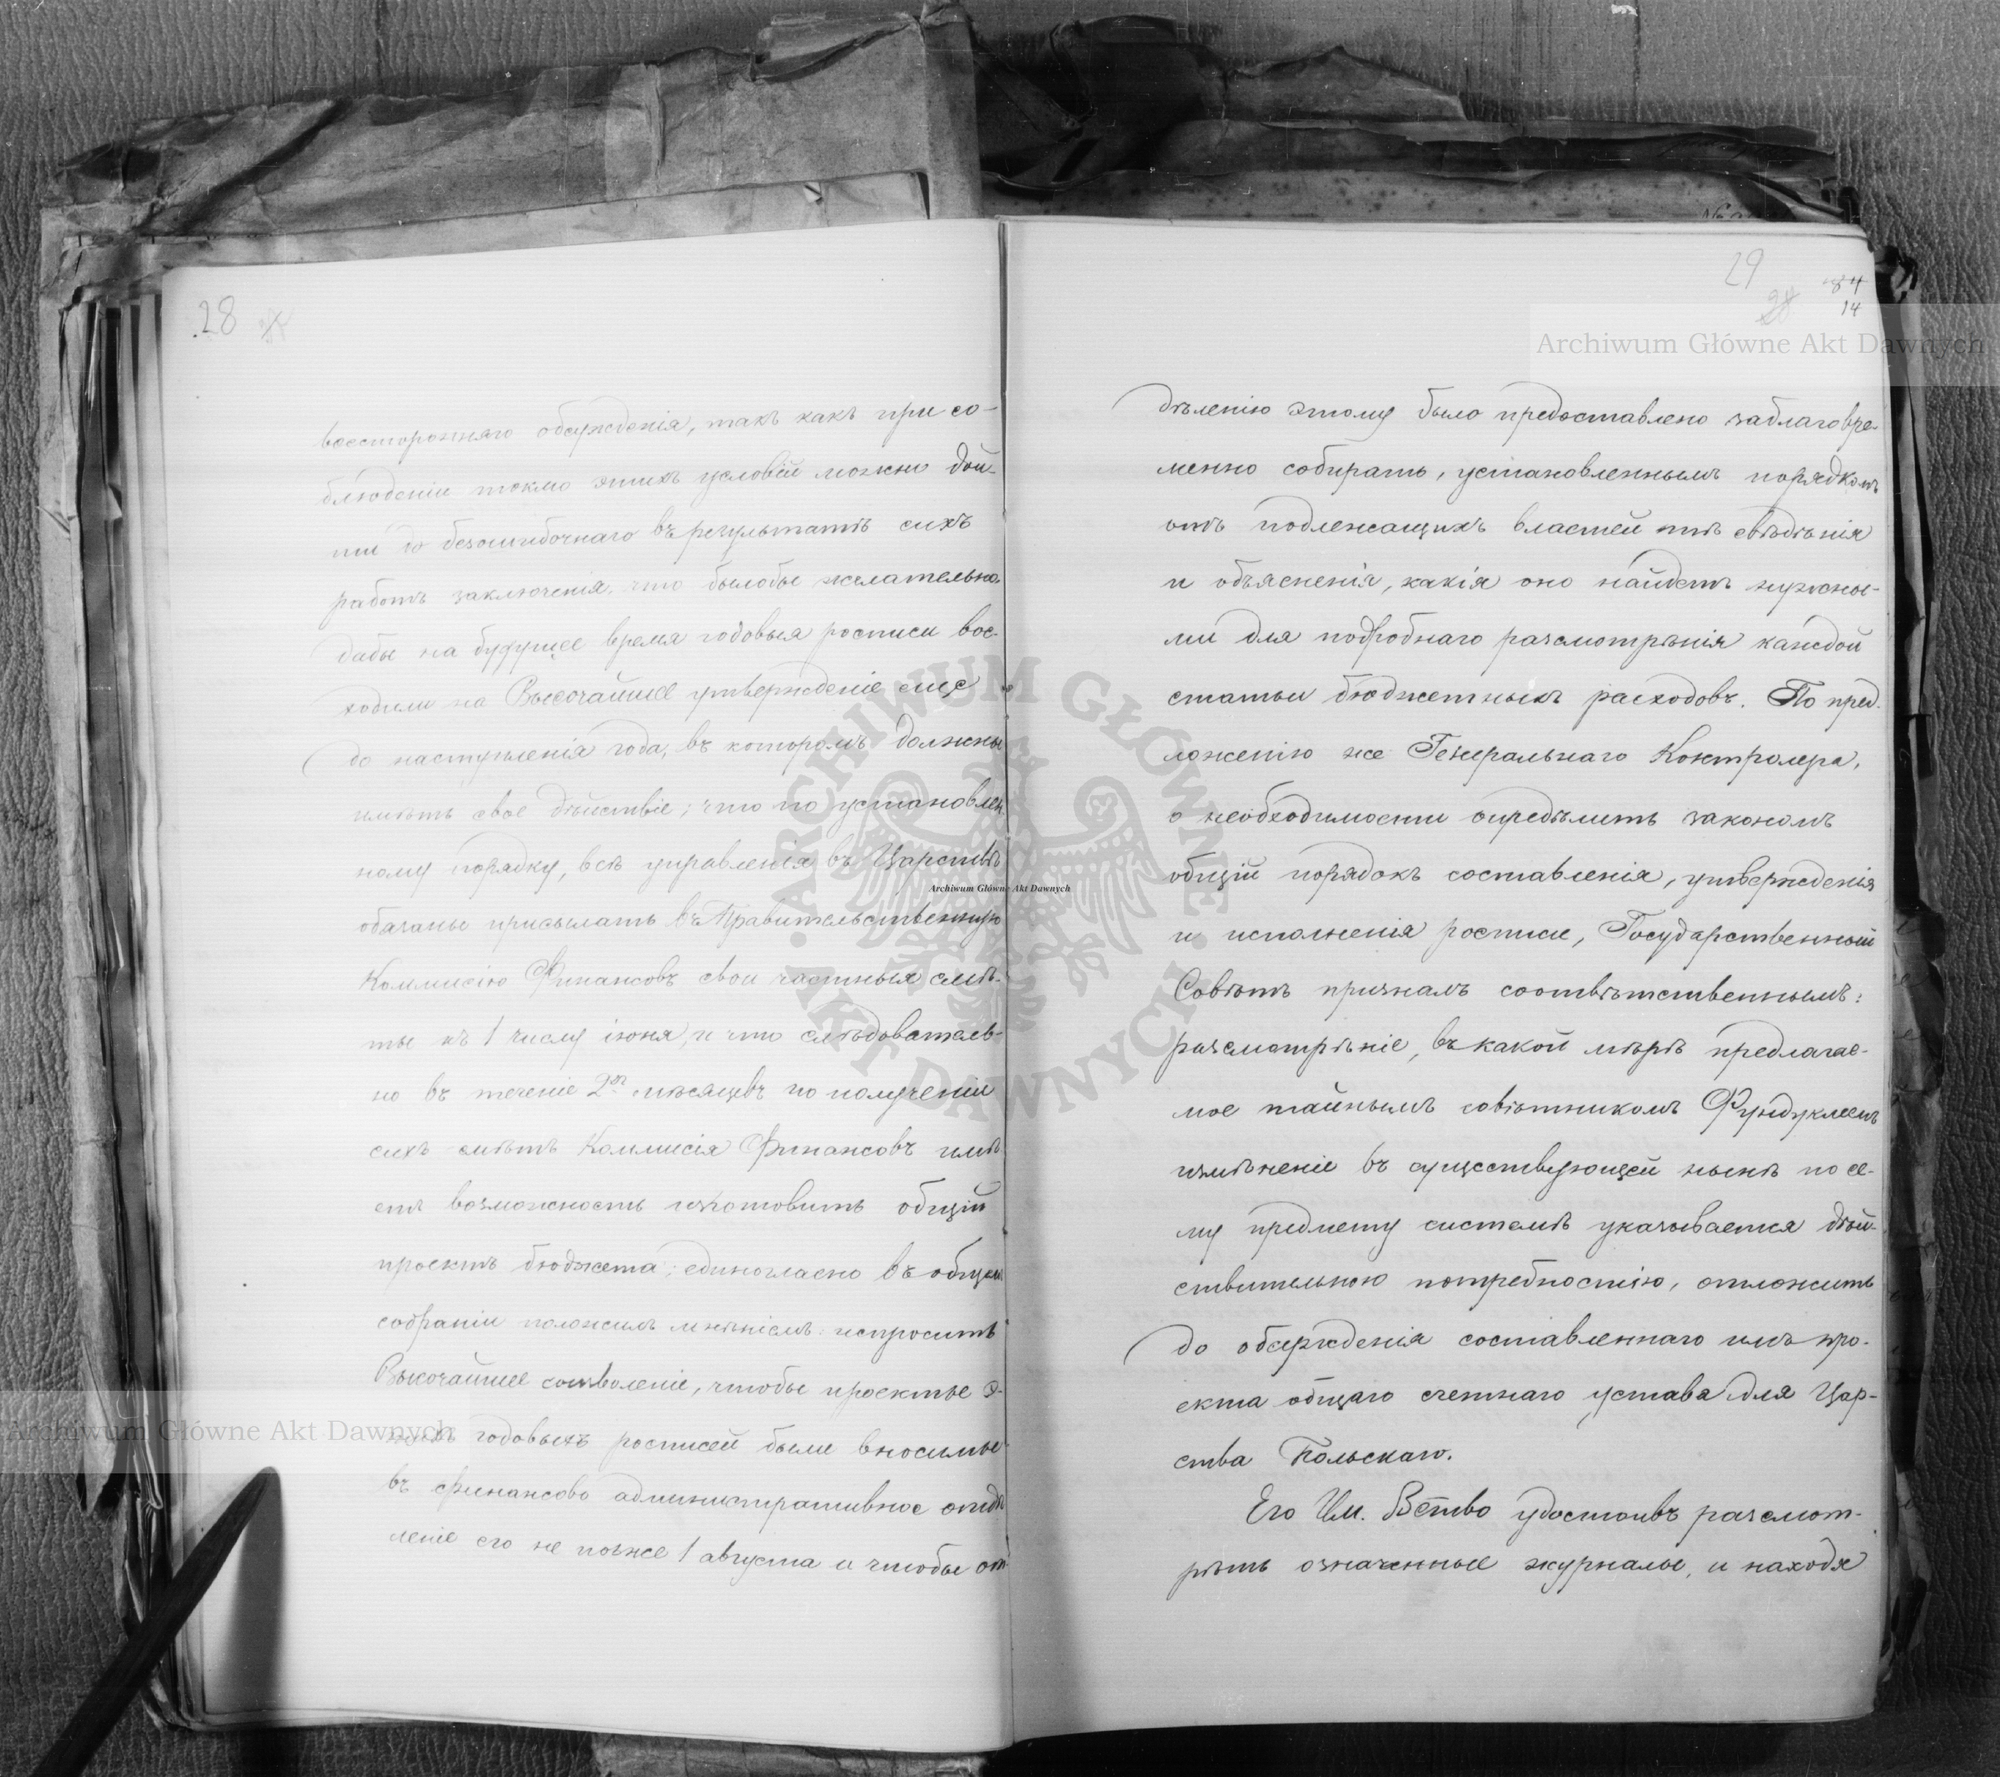 28
всесторонняго обсужденія, такъ какъ при со-
блюденіи токмо этихъ условій можно дой-
ти до безошибочнаго въ результатѣ сихъ
работъ заключенія, что былобы желательно,
дабы на будущее время годовыя росписи вос-
ходили на Высочайшее утвержденіе еще
до наступленія года, въ которомъ должны
имѣть свое дѣйствіе; что по установлен
ному порядку, всѣ управленія въ Царствѣ
обязаны присылать въ Правительственную
Коммисію Финансовъ свои частныя смѣ-
ты къ 1 числу іюня, и что слѣдователь-
но въ теченіе 2хъ мѣсяцевъ по полученіи
сихъ смѣтъ Коммисія Финансовъ имѣ
етъ возможность изготовить общій
проектъ бюджета; единогласно въ общемъ
собраніи положилъ мнѣніемъ: испросить
Высочайшее соизволеніе, чтобы проекты э-
тихъ годовыхъ росписей были вносимы
въ финансово административное отдѣ
леніе его не позже 1 августа и чтобы от
29
84
14
дѣленію этому было предоставлено заблаговре-
менно собирать, установленнымъ порядкомъ
отъ подлежащихъ властей тѣ свѣдѣнія
и объясненія, какія оно найдетъ нужны-
ми для подробнаго разсмотрѣнія каждой
статьи бюджетныхъ расходовъ. По пред-
ложенію же Генеральнаго Контролера,
о необходимости опредѣлить закономъ
общій порядокъ составленія, утвержденія
и исполненія росписи, Государственный
Совѣтъ призналъ соотвѣтственнымъ:
разсмотрѣніе, въ какой мѣрѣ предлагае-
мое тайнымъ совѣтникомъ Фундуклеемъ
измѣненіе въ существующей нынѣ по се-
му предмету системѣ указывается дѣй-
ствительною потребностію, отложить
до обсужденія составленнаго имъ про-
екта общаго счетнаго устава для Цар-
ства Польскаго.
Его Им. Вствo удостоивъ разсмот-
рѣть означенные журналы, и находя
Archiwum Główne Akt Dawnych
Archiwum Główne Akt Dawnych
Archiwum Główne Akt Dawnych
ARCHIWUM GŁÓWNE AKT DAWNYCH